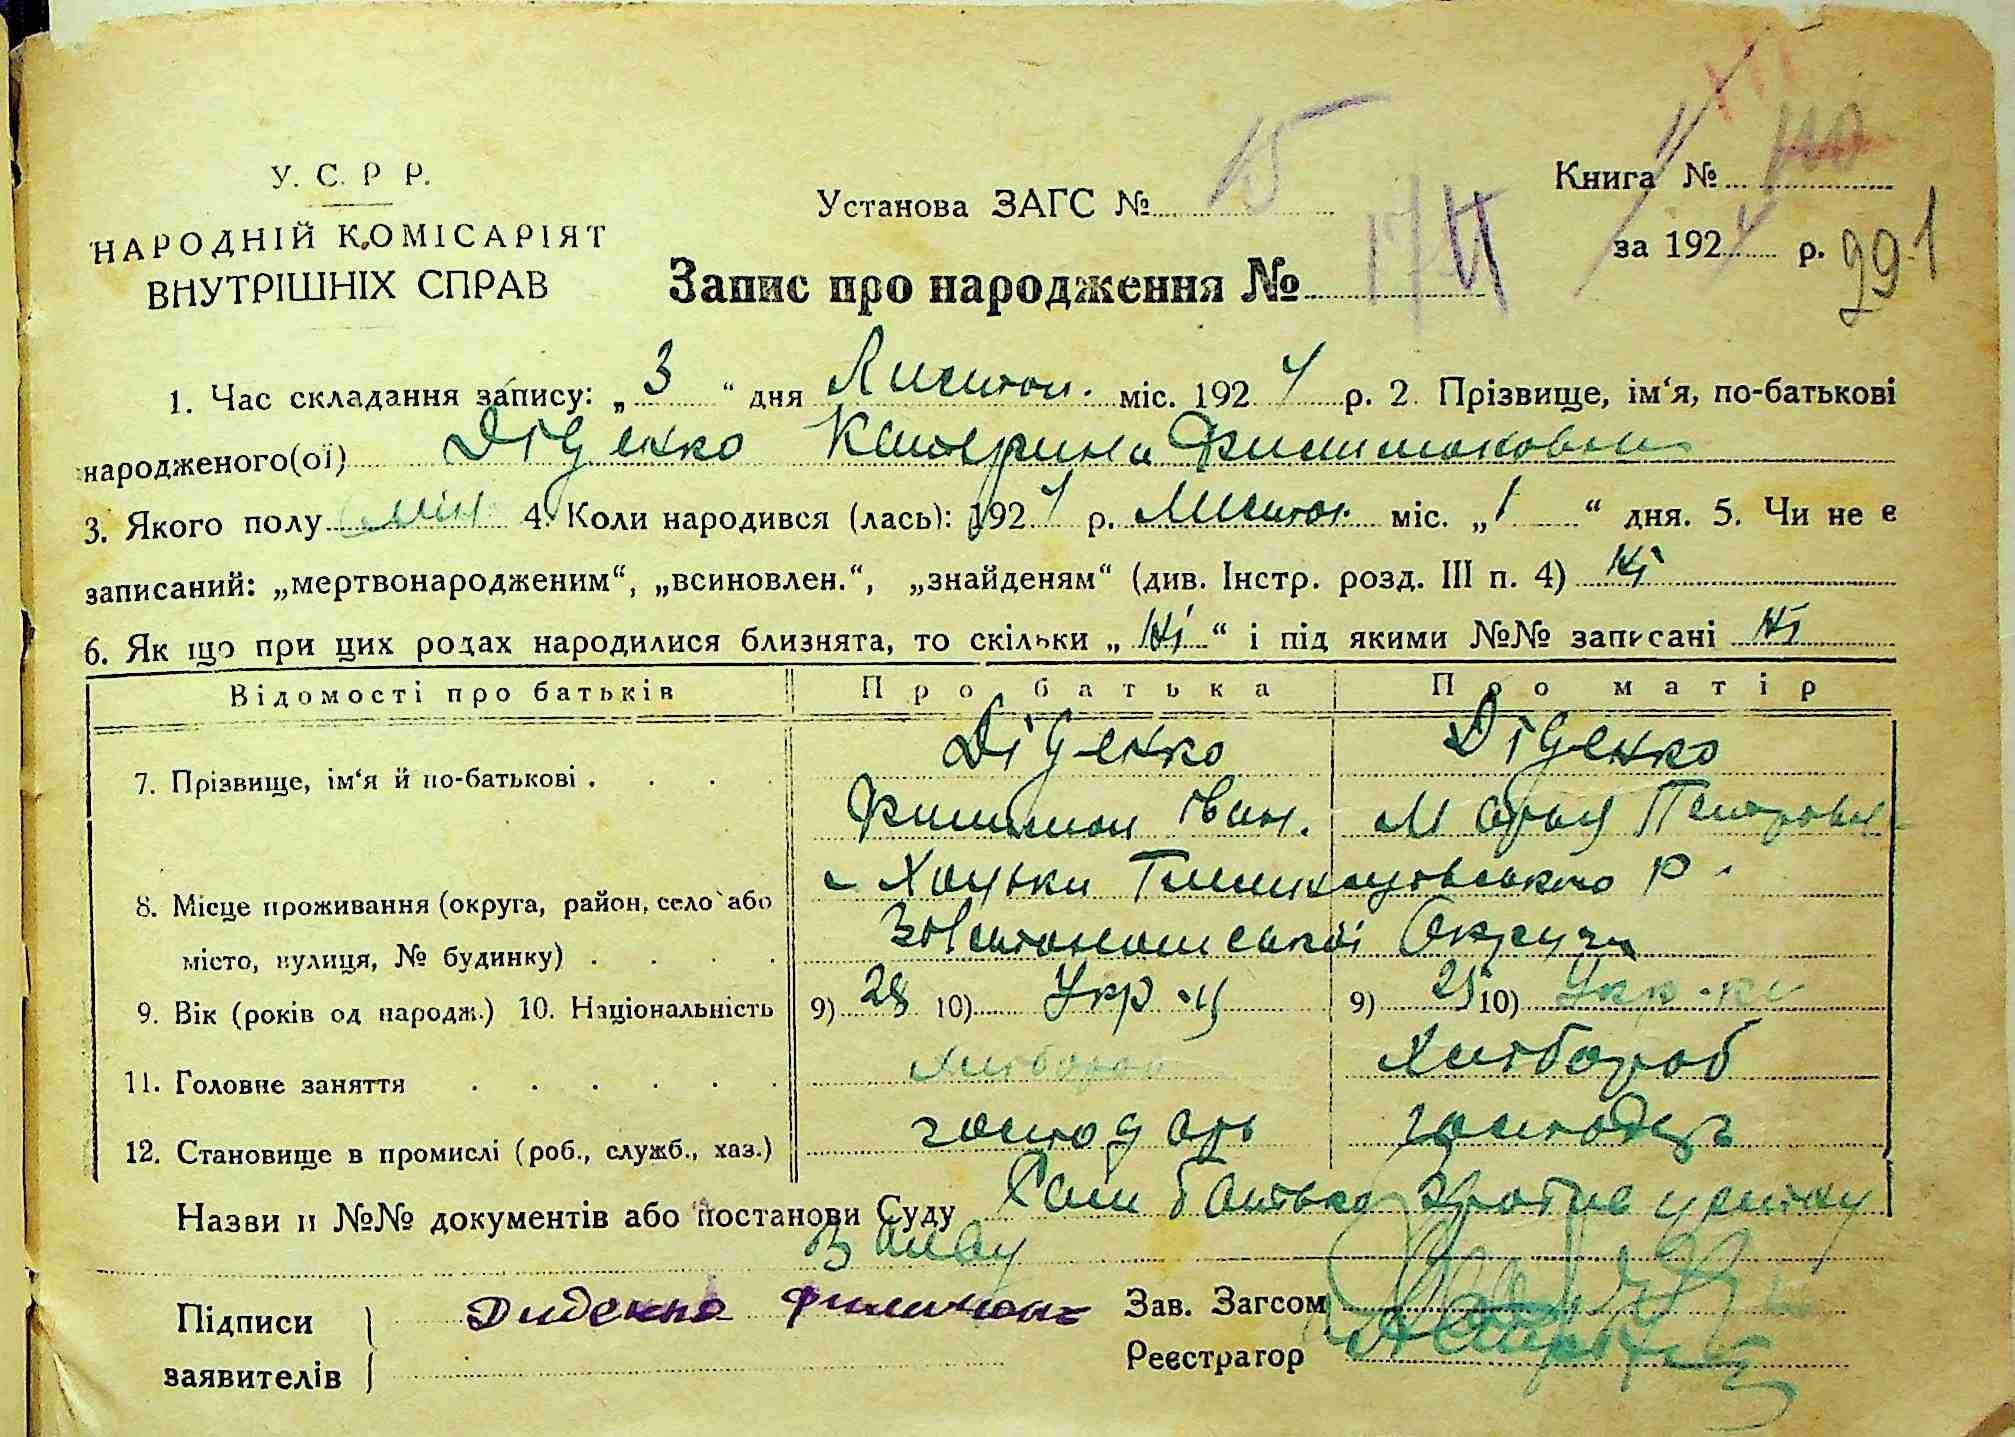 У. С. Р Р.
НАРОДНІЙ КОМІСАРІЯТ
ВНУТРІШНІХ СПРАВ
Установа ЗАГС № 15
Книга №
за 1924 р. 991
Запис про народження № 174
1. Час складання запису: „ 3 “ дня Листоп. міс. 1924 р. 2. Прізвище, ім‘я, по-батькові
народженого(ої) Діденко Катерина Филимоновна
3. Якого полу жін 4. Коли народився (лась): 1924 р. Листоп. міс. „ 1 “ дня. 5. Чи не є
записаний: „мертвонародженим“, „всиновлен.“, „знайденям“ (див. Інстр. розд. III п. 4) Ні
6. Як що при цих родах народилися близнята, то скільки „ Ні “ і під якими №№ записані Ні
Відомості про батьків Про батька Про матір
7. Прізвище, ім‘я й по-батькові . . . . Діденко Діденко
Филимон Іван. Марья Петровн
8. Місце проживання (округа, район, село або с Хоцьки Р.
місто, вулиця, № будинку) . . . . Золотоношської Округи
9. Вік (років од народж.) 10. Національність 9) 28 10) Укр-ц 9) 25 10) Укр-ка
11. Головне заняття . . . . . . Хлібороб Хлібороб
12. Становище в промислі (роб., служб., хаз.) господарь господарь
Назви и №№ документів або постанови Суду батько
Підписи Диденко Филимон Зав. Загсом
заявителів Реєстратор